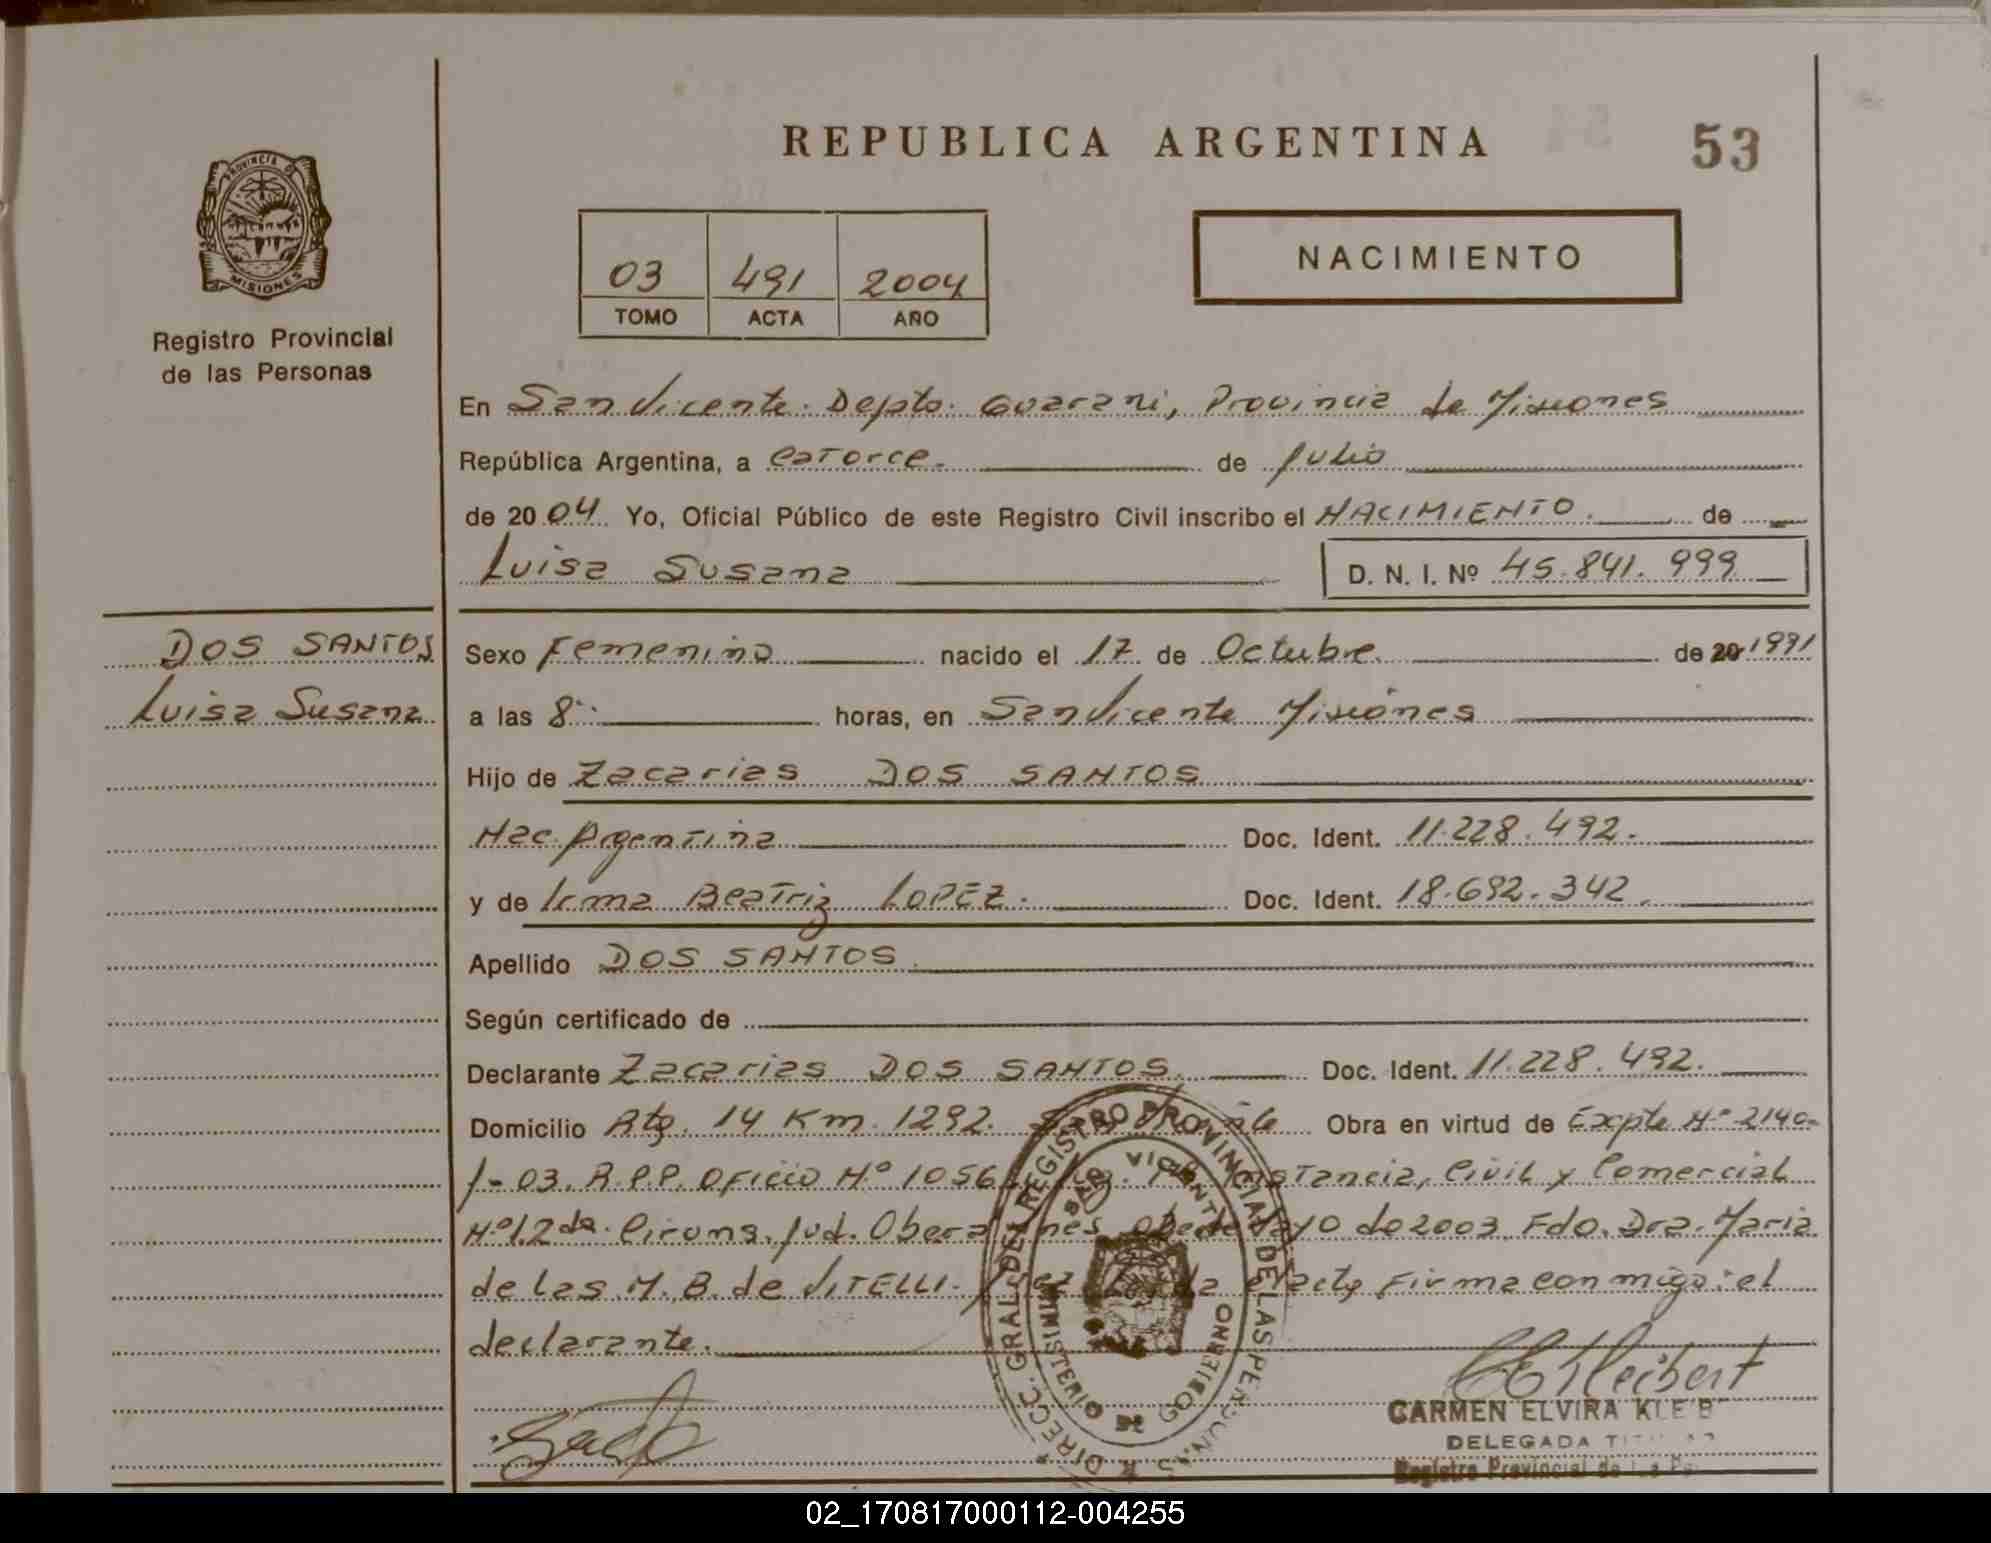 REPUBLICA ARGENTINA
53
PROVINCIA D
MISIONES
Registro Provincial
de las Personas
03 491 2004
TOMO ACTA AÑO
NACIMIENTO
En San Vicente. Depto. Guarani, Provincia de Misiones
República Argentina, a catorce. de Julio
de 2004 Yo, Oficial Público de este Registro Civil inscribo el NACIMIENTO. de
Luisa Susana D. N. I. Nº 45.841.999
DOS SANTOS
Luisa Susana
Sexo Femenino nacido el 17 de Octubre. de 20 1991
a las 8 horas, en San Vicente Misiones
Hijo de Zacarias DOS SANTOS
Nac. Argentina Doc. Ident. 11.228.492.
y de Irma Beatriz LOPEZ. Doc. Ident. 18.692.342.
Apellido DOS SANTOS.
Según certificado de
Declarante Zacarias DOS SANTOS. Doc. Ident. 11.228.492.
Domicilio Km. 1292. Obra en virtud de Expte Nº 2140-
/-03. R.P.P. Oficio Nº 1056 Civil y Comercial
Nº1.2da. Circuns. Jud. Obera de 2003. Fdo. Dra. Maria
de las M. B. de VITELLI. Firma conmigo: el
declarante.
DIRECC. GRAL. DEL REGISTRO PROVINCIAL DE LAS PERSONAS
SAN VICENTE
MINISTERIO DE GOBIERNO
CARMEN ELVIRA KLEIB
DELEGADA
Registro Provincial de
02_170817000112-004255